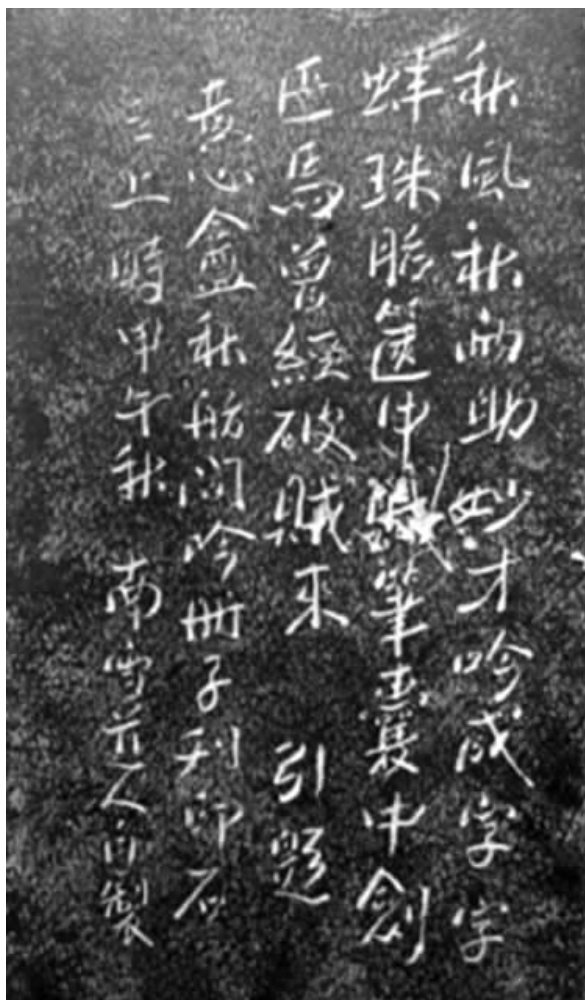 秋風秋雨助妙才吟成字字
蚌珠胎篋中筆囊中劍
匹馬曾經破賊來 引題
意心盦秋舫閒吟冊子刊印石
之上時甲午秋 南雪道人自製